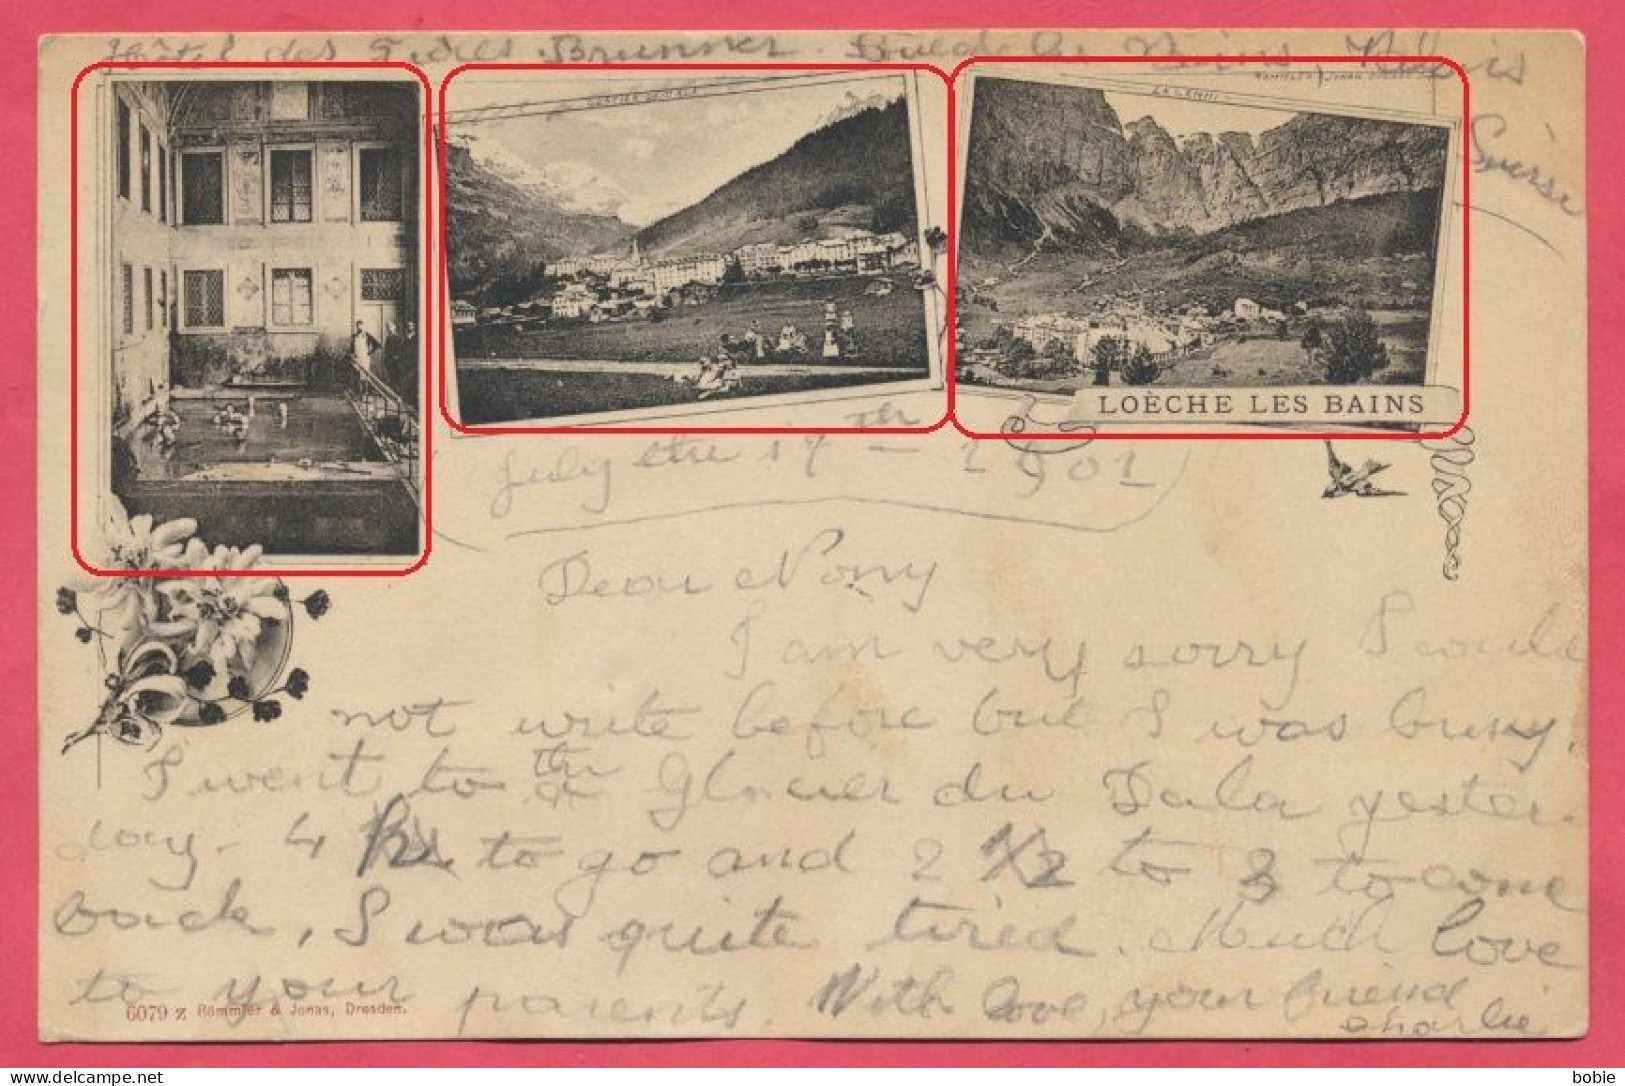 Hôtel des Brunner Louèche les Bains, Valais
Suisse
GLACIER DE DALA
LA GEMMI
LOÈCHE LES BAINS
July the 17th - 1901
Dear Nony
I am very sorry I could
not write before but I was busy.
I went to the Glacier du Dala yester-
day. 4 h to go and 2 1/2 to 3 to come
back, I was quite tired. Much love
to your parents. With love, your friend
Charlie
6079 z Römmler & Jonas, Dresden.
bobie